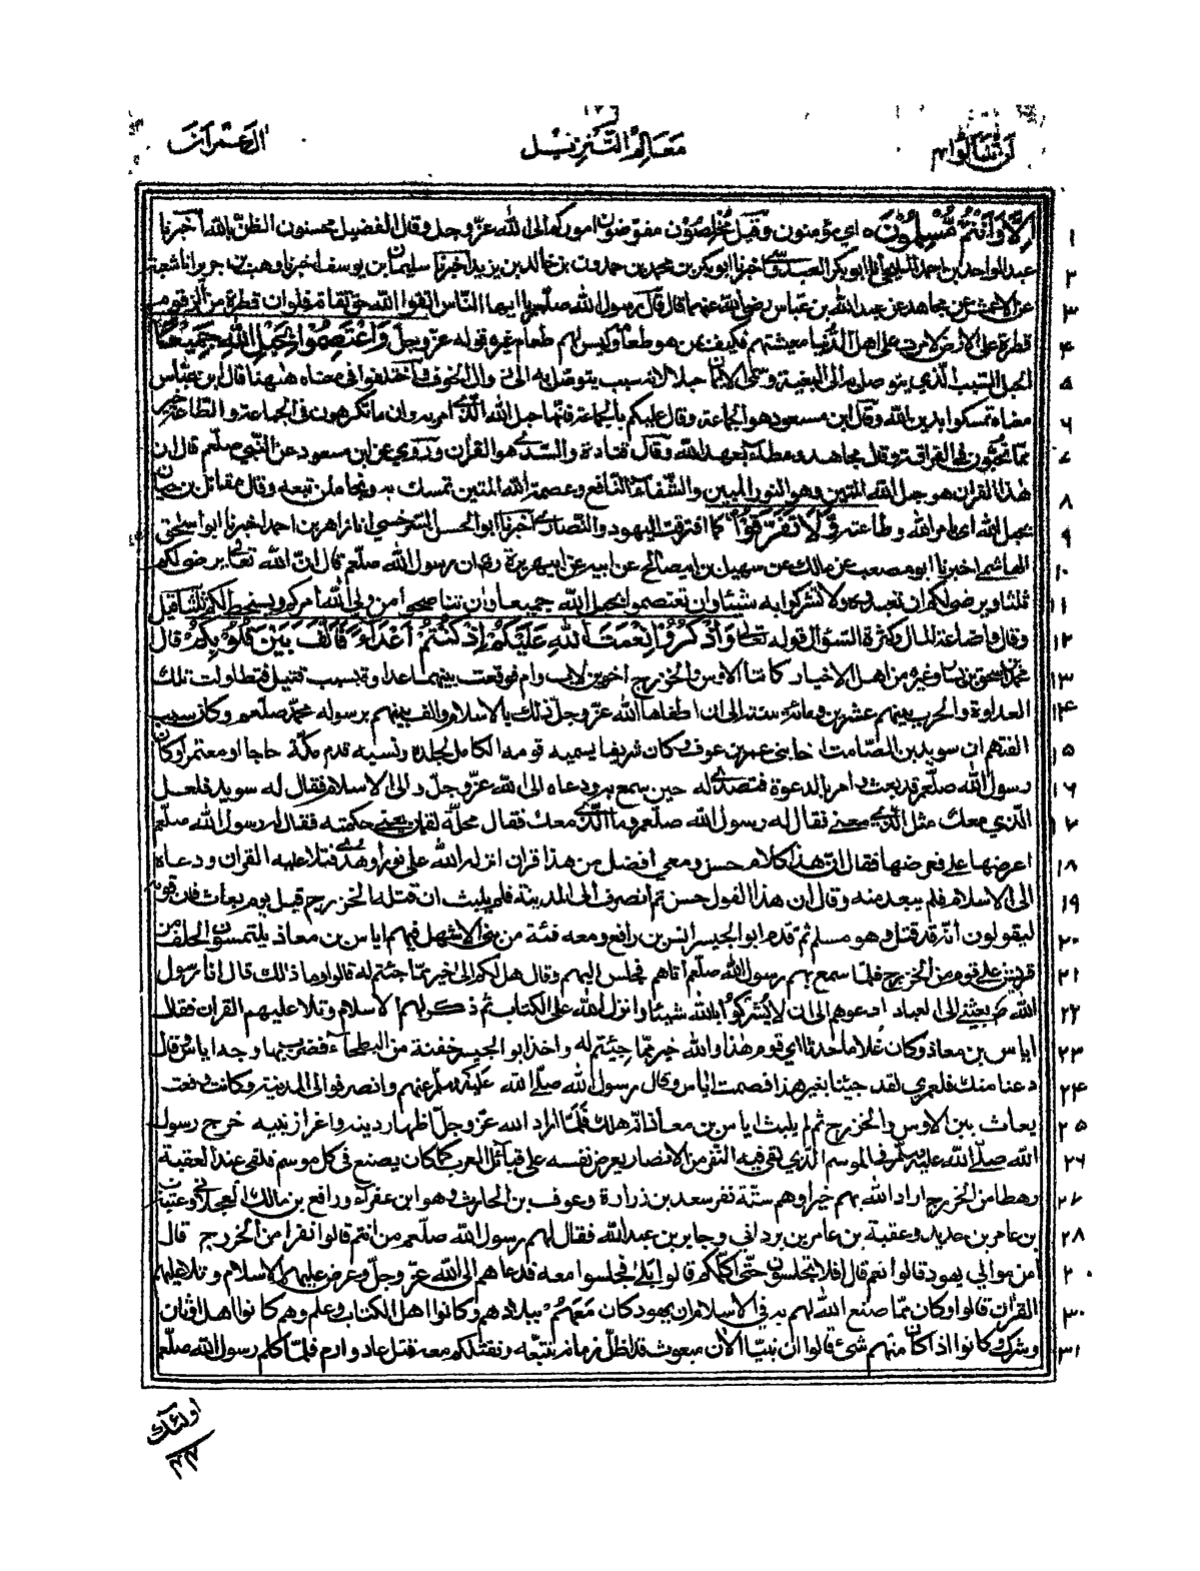 لن تنالوا ٤
معالم التنزيل
ال عمران
١ اِلَّا وَاَنْتُمْ مُّسْلِمُوْنَ ه اي مؤمنون وقيل مخلصون مفوضون اموركم الى الله عزوجل وقال الفضيل محسنون الظن بالله اخبرنا
٢ عبد الواحد بن احمد المليحي انا ابو بكر العبدوسي اخبرنا ابو بكر بن محمد بن حمدون بن خالد بن يزيد اخبرنا سليمان بن يوسف اخبرنا وهب بن جرير انا شعبة
٣ عن الاعمش عن مجاهد عن عبد الله بن عباس رضي الله عنهما قال قال رسول الله صلعم يا ايها الناس اتقوا الله حق تقاته فلو ان قطرة من الزقوم
٤ قطرة على الارض لامرت على اهل الدنيا معيشتهم فكيف بمن هو طعامه وليس لهم طعام غيره قوله عزوجل وَاعْتَصِمُوْا بِحَبْلِ اللهِ جَمِيْعًا
٥ الحبل السبب الذي يتوصل به الى البغية وسمى الايمان حبلا لانه سبب يتوصل به الى زوال الخوف واختلفوا في معناه ههنا قال ابن عباس
٦ معناه تمسكوا بدين الله وقال ابن مسعود هو الجماعة وقال عليكم بالجماعة فانها حبل الله الذي امر به وان ما تكرهون في الجماعة والطاعة خير
٧ مما تحبون في الفرقة وقال مجاهد وعطاء بعهد الله وقال قتادة والسدي هو القران وروي عن ابن مسعود عن النبي صلعم قال ان
٨ هذا القران هو حبل الله المتين وهو النور المبين والشفاء النافع وعصمة الله المتين تمسك به ونجا من تبعه وقال مقاتل بن حيان
٩ بحبل الله اي بامر الله وطاعته وَّلَا تَفَرَّقُوْا كما افترقت اليهود والنصارى اخبرنا ابو الحسن السرخسي انا زاهر بن احمد اخبرنا ابو اسحق
١٠ الهاشمي اخبرنا ابو مصعب عن مالك عن سهيل بن ابي صالح عن ابيه عن ابي هريرة رض ان رسول الله صلعم قال ان الله تعالى يرضى لكم
١١ ثلثا ويرضى لكم ان تعبدوه ولا تشركوا به شيئا وان تعتصموا بحبل الله جميعا وان تناصحوا من ولى الله امركم ويسخط لكم ثلثا قيل
١٢ وقال واضاعة المال وكثرة السؤال قوله تعالى وَاذْكُرُوْا نِعْمَتَ اللهِ عَلَيْكُمْ اِذْ كُنْتُمْ اَعْدَآءً فَاَلَّفَ بَيْنَ قُلُوْبِكُمْ قال
١٣ محمد بن اسحق بن يسار وغيره من اهل الاخبار كانتا الاوس والخزرج اخوين لاب وام فوقعت بينهما عداوة بسبب قتيل فتطاولت تلك
١٤ العداوة والحرب بينهم عشرين ومائة سنة الى ان اطفاها الله عزوجل ذلك بالاسلام والف بينهم برسوله محمد صلعم وكان سبب
١٥ الفتهم ان سويد بن الصامت اخا بني عمرو بن عوف وكان شريفا يسميه قومه الكامل لجلده ونسبه قدم مكة حاجا او معتمرا وكان
١٦ رسول الله صلعم قد بعث وامر بالدعوة فتصدى له حين سمع به ودعاه الى الله عزوجل والى الاسلام فقال له سويد فلعل
١٧ الذي معك مثل الذي معي فقال له رسول الله صلعم وما الذي معك فقال مجلة لقمان يعني حكمته فقال له رسول الله صلعم
١٨ اعرضها علي فعرضها فقال ان هذا كلام حسن ومعي افضل من هذا قران انزله الله علي نورا وهدى فتلا عليه القران ودعاه
١٩ الى الاسلام فلم يبعد منه وقال ان هذا القول حسن ثم انصرف الى المدينة فلم يلبث ان قتله الخزرج قبل يوم بعاث فان قومه
٢٠ ليقولون انه قد قتل وهو مسلم ثم قدم ابو الحيسر انس بن رافع ومعه فئة من بني الاشهل فيهم اياس بن معاذ يلتمسون الحلف من
٢١ قريش على قوم من الخزرج فلما سمع بهم رسول الله صلعم اتاهم فجلس اليهم وقال هل لكم الى خير مما جئتم له قالوا وما ذلك قال انا رسول
٢٢ الله بعثني الى العباد ادعوهم الى ان لا يشركوا بالله شيئا وانزل الله علي الكتاب ثم ذكر لهم الاسلام وتلا عليهم القران فقال
٢٣ اياس بن معاذ وكان غلاما حدثا اي قوم هذا والله خير مما جئتم له واخذ ابو الحيسر حفنة من البطحاء فضرب بها وجه اياس وقال
٢٤ دعنا منك فلعمري لقد جئنا بغير هذا فصمت اياس وقال رسول الله صلى الله عليه وسلم عنهم وانصرفوا الى المدينة وكانت وقعة
٢٥ بعاث بين الاوس والخزرج ثم لم يلبث اياس بن معاذ ان هلك فلما اراد الله عزوجل اظهار دينه واعزاز نبيه خرج رسول
٢٦ الله صلى الله عليه وسلم في الموسم الذي لقي فيه النفر من الانصار يعرض نفسه على قبائل العرب كما كان يصنع في كل موسم فلقي عند العقبة
٢٧ رهطا من الخزرج اراد الله بهم خيرا وهم ستة نفر سعد بن زرارة وعوف بن الحارث وهو ابن عفراء ورافع بن مالك العجلاني وعتبة
٢٨ بن عامر بن حديد وعقبة بن عامر بن برداني وجابر بن عبد الله فقال لهم رسول الله صلعم من انتم قالوا نفر من الخزرج قال
٢٠ امن موالي يهود قالوا نعم قال افلا تجلسون حتى اكلمكم قالوا بلى فجلسوا معه فدعاهم الى الله عزوجل وعرض عليهم الاسلام وتلا عليهم
٣٠ القران قالوا وكان مما صنع الله لهم به في الاسلام ان يهود كان معهم ببلادهم وكانوا اهل الكتاب وعلم وهم كانوا اهل اوثان
٣١ وشرك وكانوا اذا كان منهم شئ قالوا ان نبيا الآن مبعوث قد اظل زمانه نتبعه ونقتلكم معه قتل عاد وارم فلما كلم رسول الله صلعم
اولئك